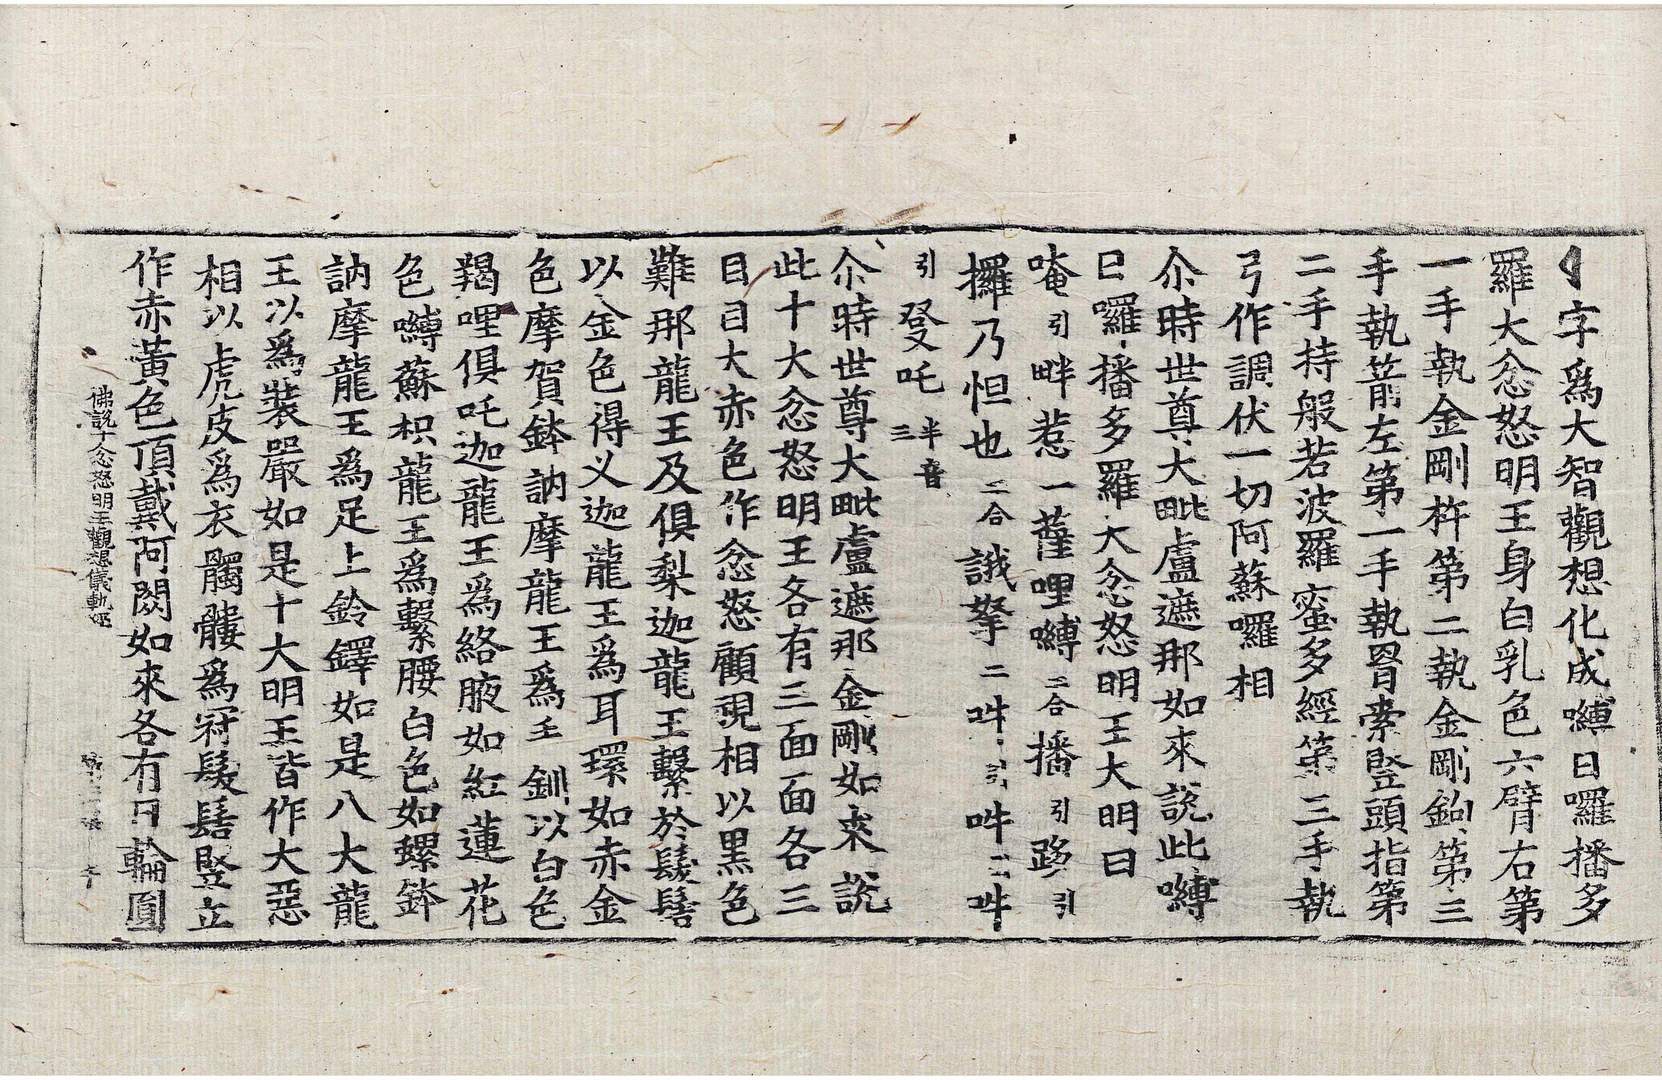 字爲大智觀想化成嚩日囉播多
羅大忿怒明王身白乳色六臂右第
一手執金剛杵第二執金剛鉤第三
手執箭左第一手執罥索竪頭指第
二手持般若波羅蜜多經第三手執
弓作調伏一切阿蘇囉相
尒時世尊大毗盧遮那如來說此嚩
日囉播多羅大忿怒明王大明曰
唵引畔惹一薩哩嚩二合播引跢引
攞乃怛也二合誐拏二吽引吽二吽
引發吒半音三
尒時世尊大毗盧遮那金剛如来說
此十大忿怒明王各有三面面各三
目目大赤色作忿怒顧視相以黑色
難那龍王及俱梨迦龍王繫於髮髻
以金色得义迦龍王爲耳環如赤金
色摩賀鉢訥摩龍王爲玉釧以白色
羯哩俱吒迦龍王爲絡腋如紅蓮花
色嚩蘇枳龍王爲繫腰白色如螺鉢
訥摩龍王爲足上鈴鐸如是八大龍
王以爲裝嚴如是十大明王皆作大惡
相以虎皮爲衣髑髏爲冠髮髻竪立
作赤黃色頂戴阿閦如來各有日輪圓
佛說十忿怒明王觀想儀軌經
張